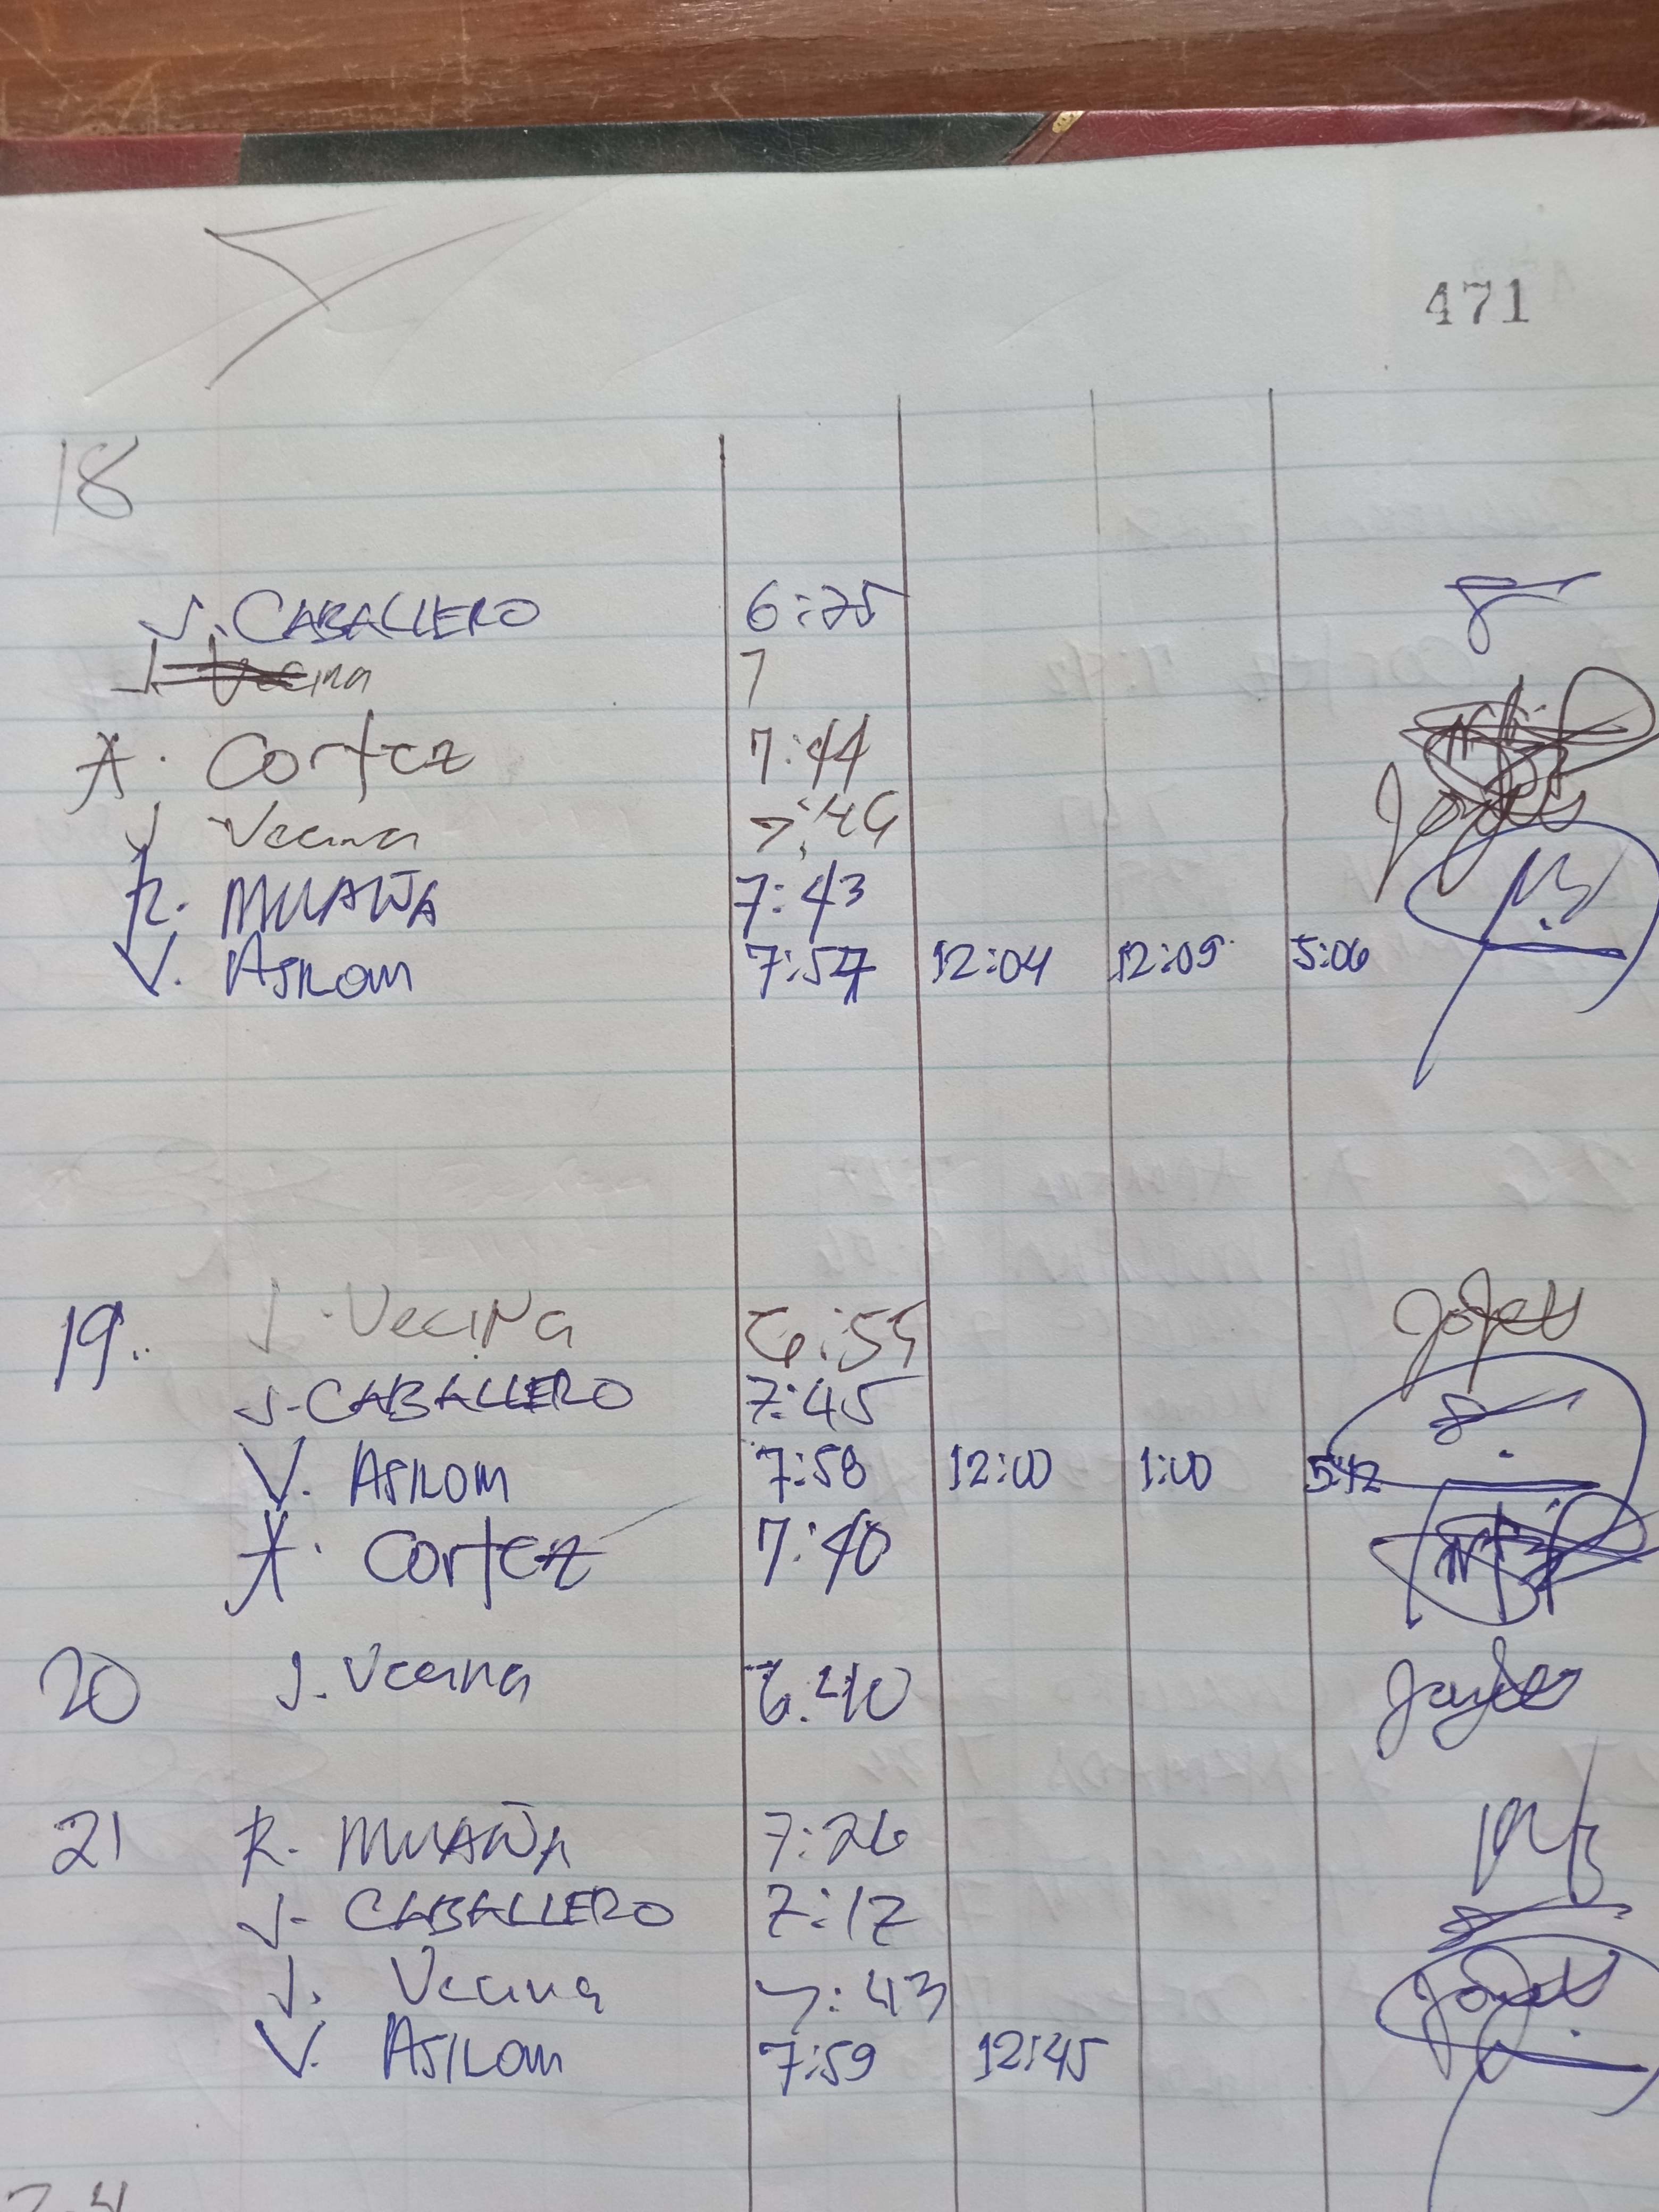 471
18
J. CABALLERO 6:25
J. Vecina 7
A. Cortez 7:44
J Vecina 7:49
R. 7:43
V. ASILOM 7:57 12:04 12:09 5:06
19. J. Vecina 6:55
J. CABALLERO 7:45
V. ASILOM 7:58 12:00 1:00 5:42
A. Cortez 7:40
20 J. Vecina 6:40
21 R. 7:26
J. CABALLERO 7:17
J. Vecina 7:43
V. ASILOM 7:59 12:45